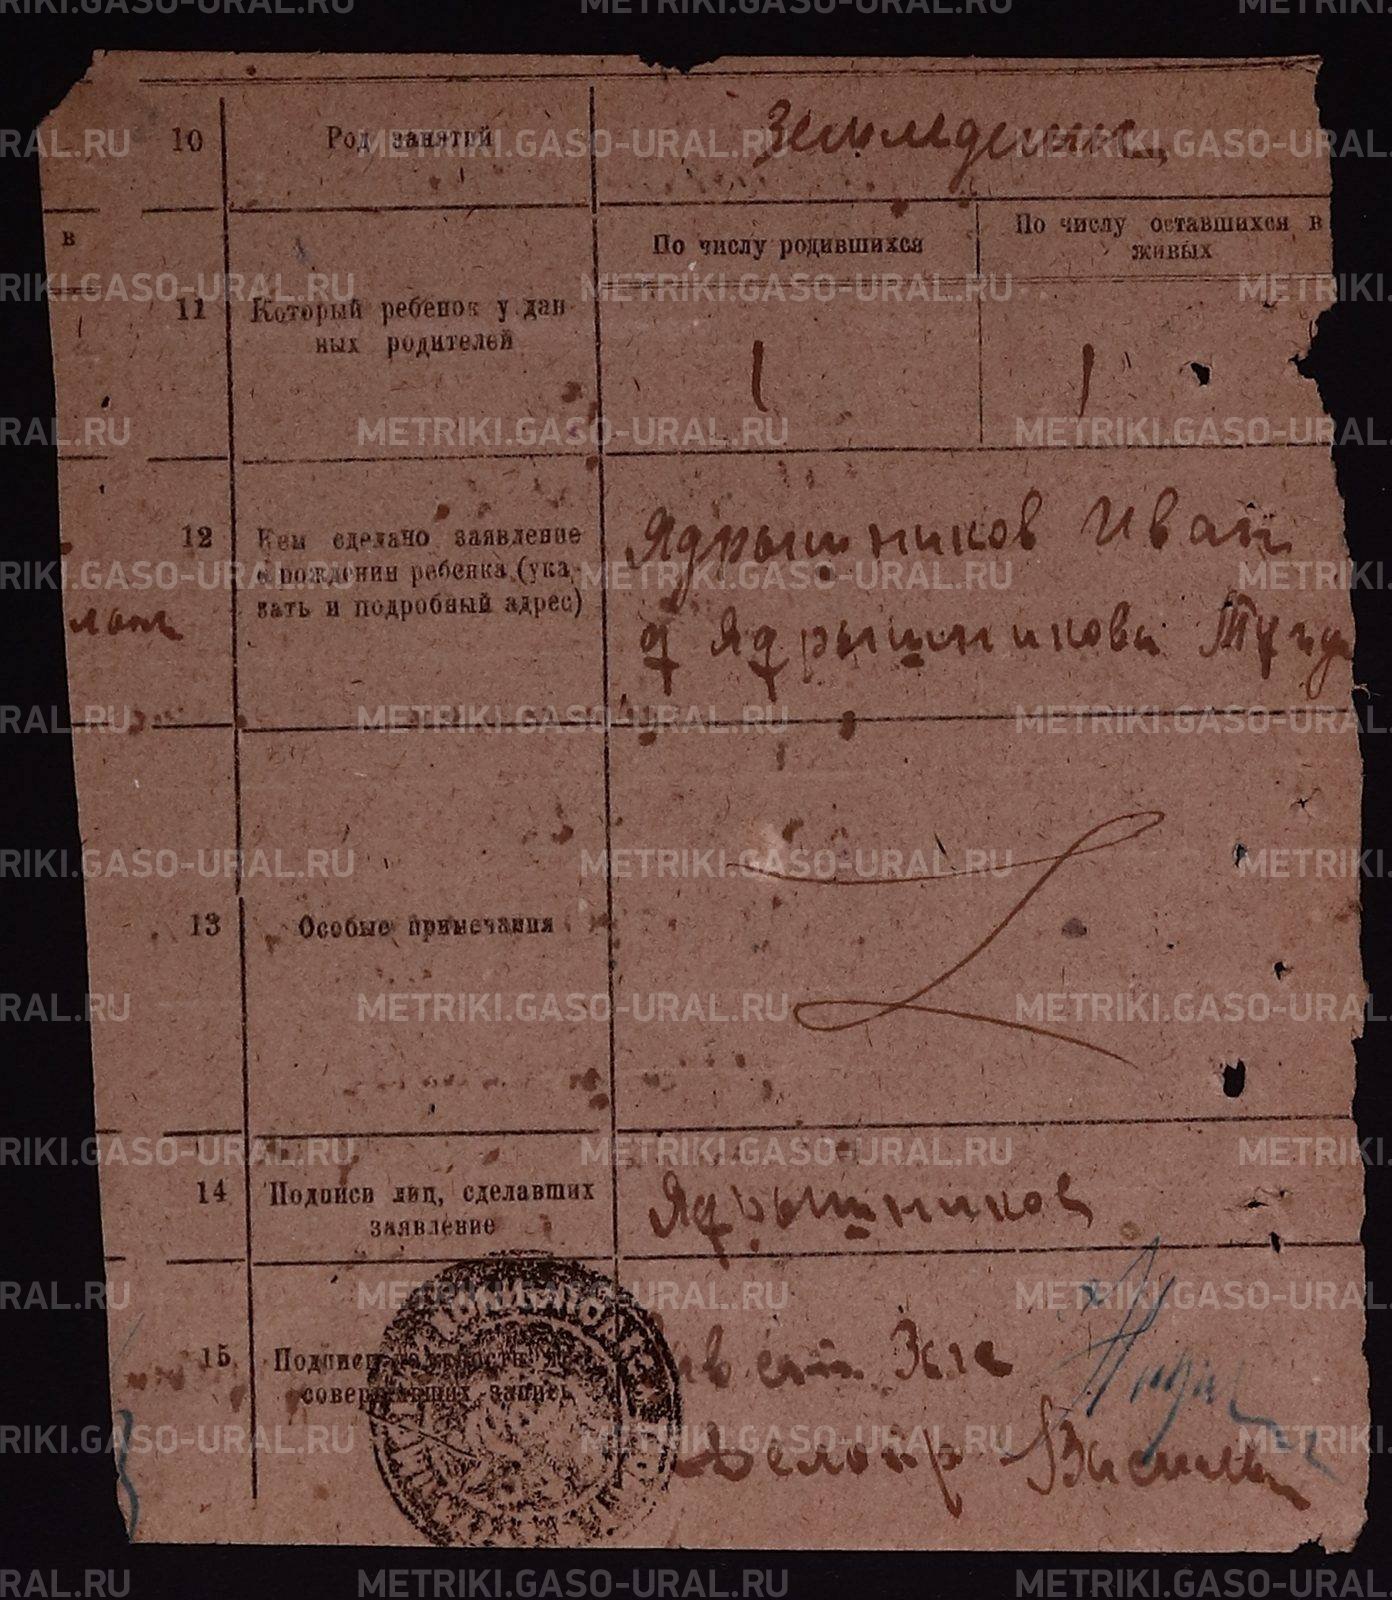 10 Род занятий Земледелец
в
По числу родившихся
По числу оставшихся в
живых
11 Который ребенок у дан-
ных родителей
1 1
12 Кем сделано заявление
о рождении ребенка (ука-
зать и подробный адрес)
Ядрышников Иван
д Ядрышникова
13 Особые примечания
14 Подписи лиц, сделавших
заявление
Ядрышников
15 Подписи
совершавших запись
METRIKI.GASO-URAL.RU